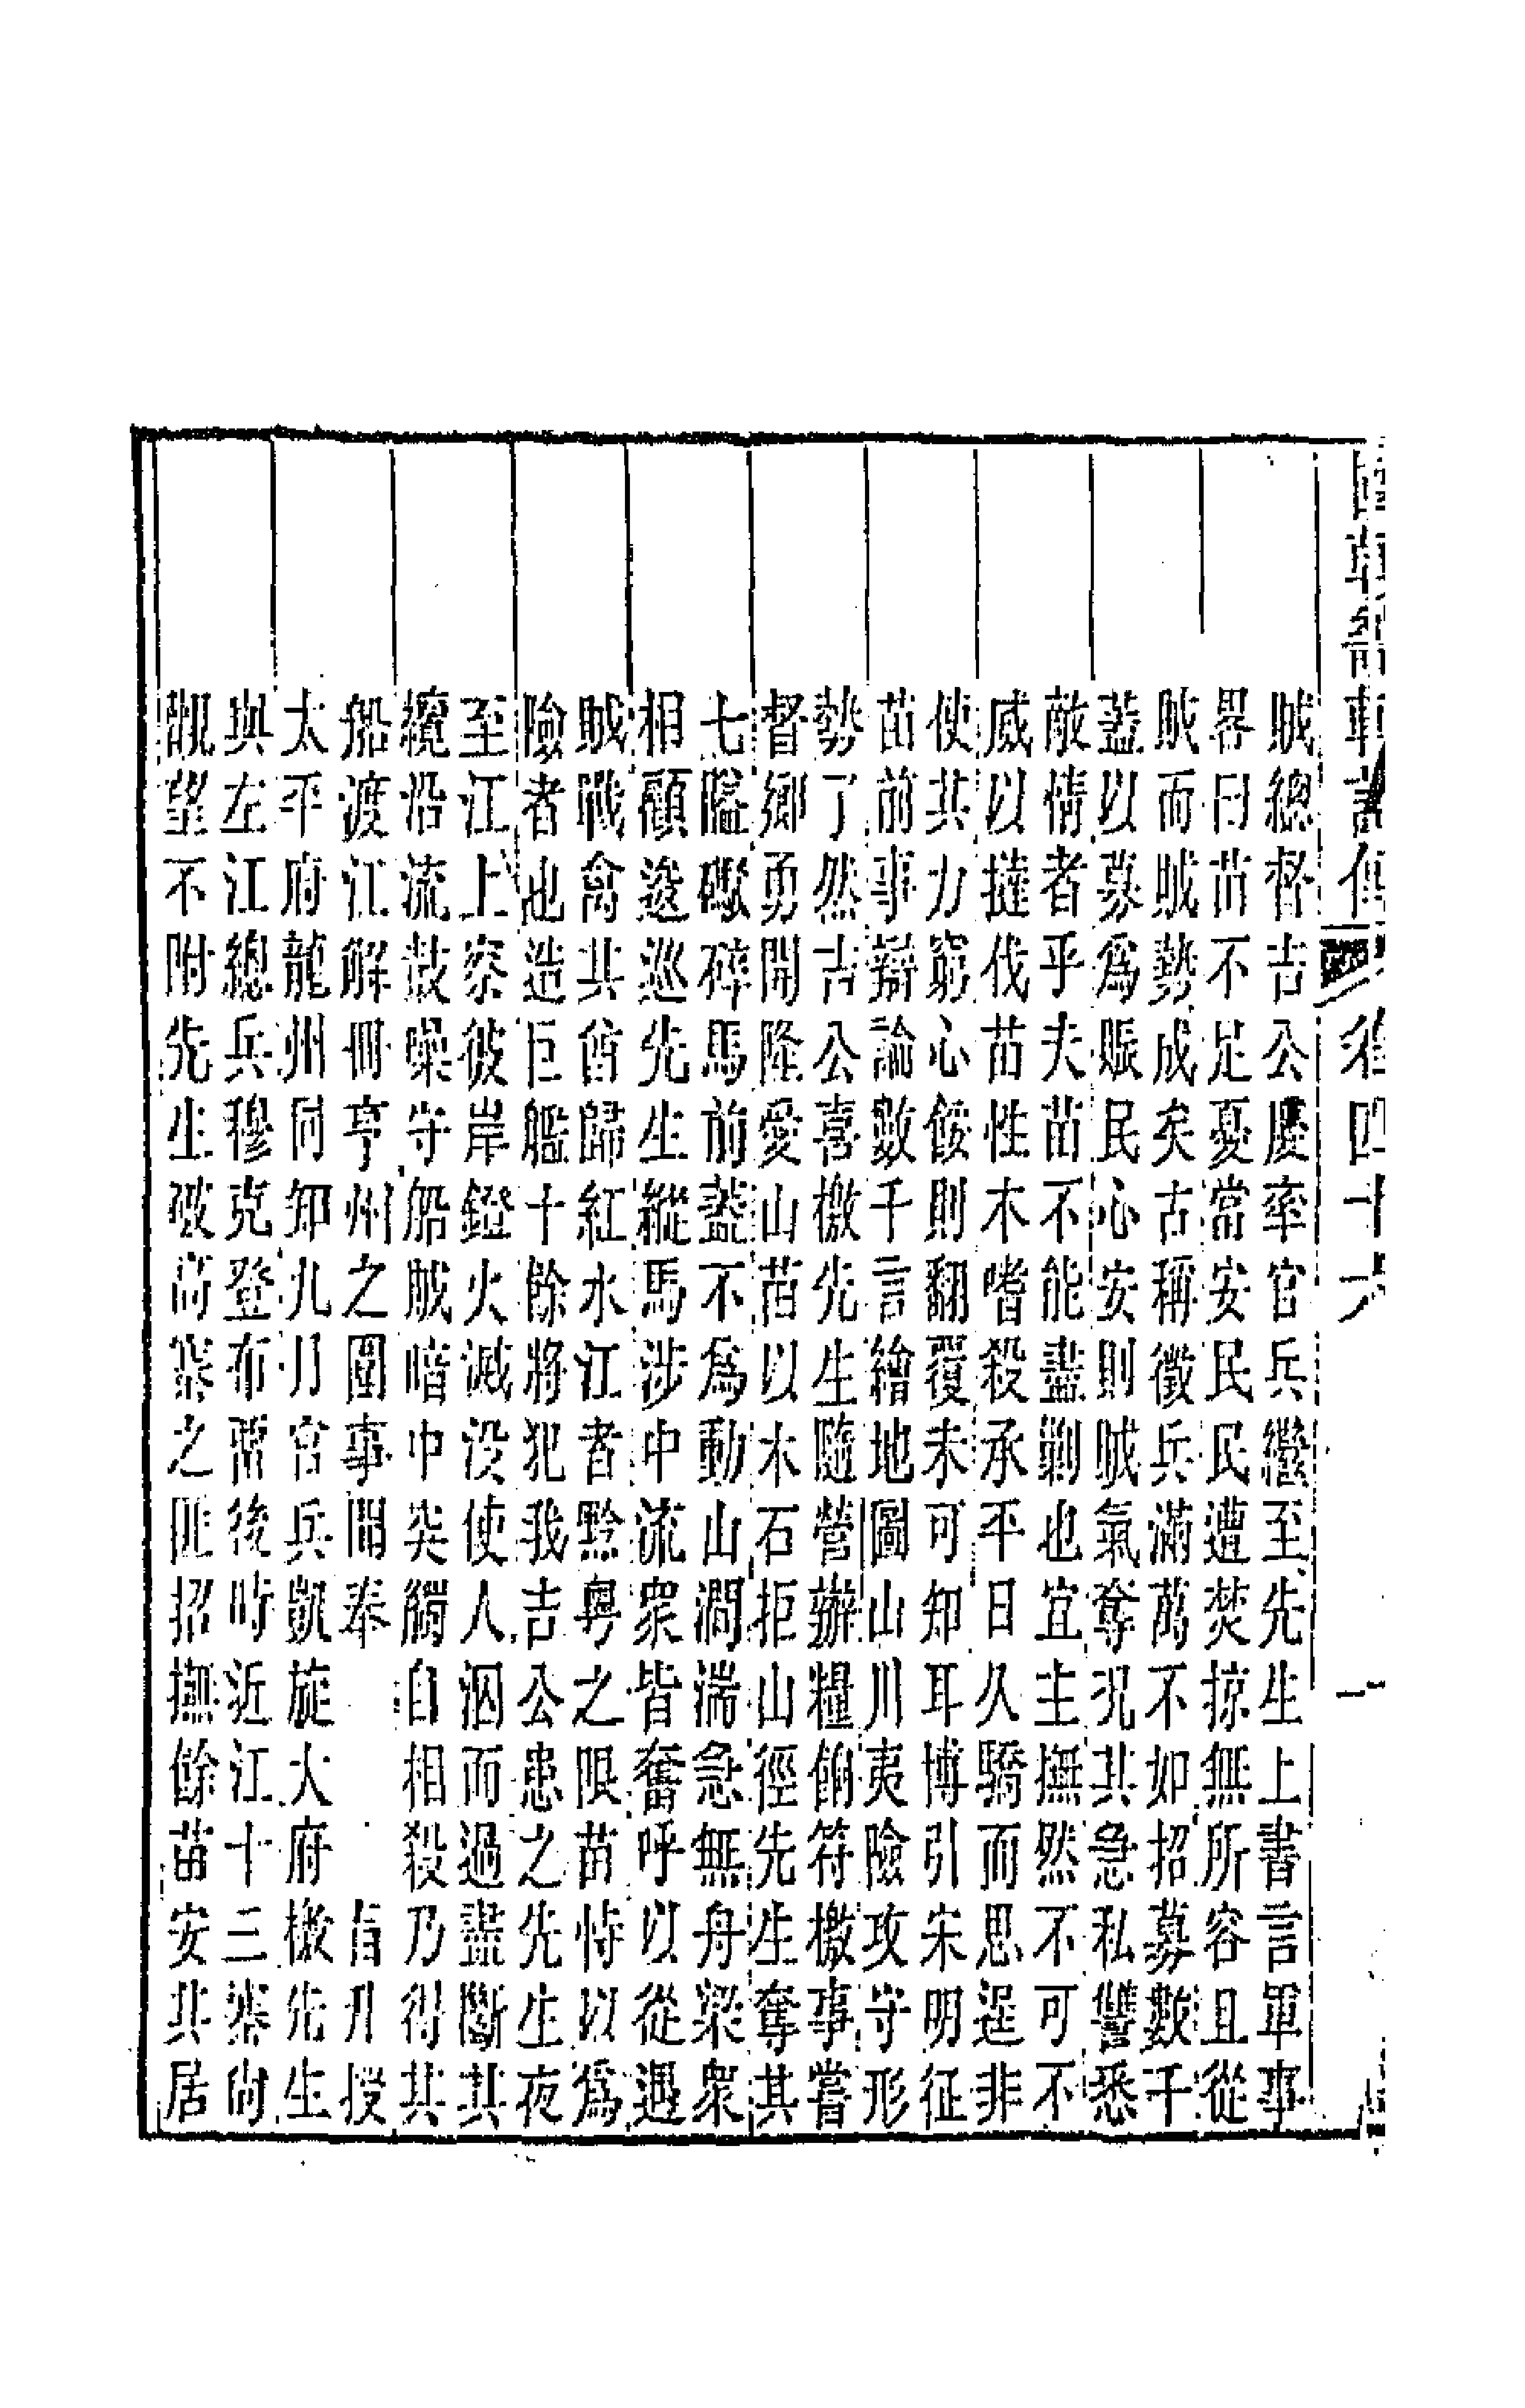 賊總督吉公慶率官兵繼至先生上書言軍事
畧曰苗不足憂常安民民遭焚掠無所容且從
賊而賊勢成矣古稱徵兵滿萬不如招募數千
蓋以募爲賑民心安則賊氣奪況其急私讐悉
敵情者乎夫苗不能盡剿也宜主撫然不可不
威以撻伐苗性木嗜殺承平日久驕而思逞非
使其力窮心餒則翻覆未可知耳博引宋明征
苗前事辯論數千言繪地圖山川夷險攻守形
勢了然吉公喜檄先生隨營辦糧餉符檄事嘗
督鄉勇開隆愛山苗以木石拒山徑先生奪其
七隘礮碎馬前蓋不爲動山澗湍急無舟梁眾
相顧逡巡先生縱馬涉中流眾皆奮呼以從遇
賊戰禽其酋歸紅水江者黔粵之限苗恃以爲
險者也造巨艦十餘將犯我吉公患之先生夜
至江上察彼岸鐙火滅沒使人泅而過盡斷其
纜沿流鼓噪守船賊暗中突觸自相殺乃得其
船渡江解冊亨州之圍事聞奉 旨升授
太平府龍州同知九月官兵凱旋大府檄先生
與左江總兵穆克登布籌後時近江十三寨尚
觀望不附先生破高寨之匪招撫餘苗安共居
國朝耆
卷四十六